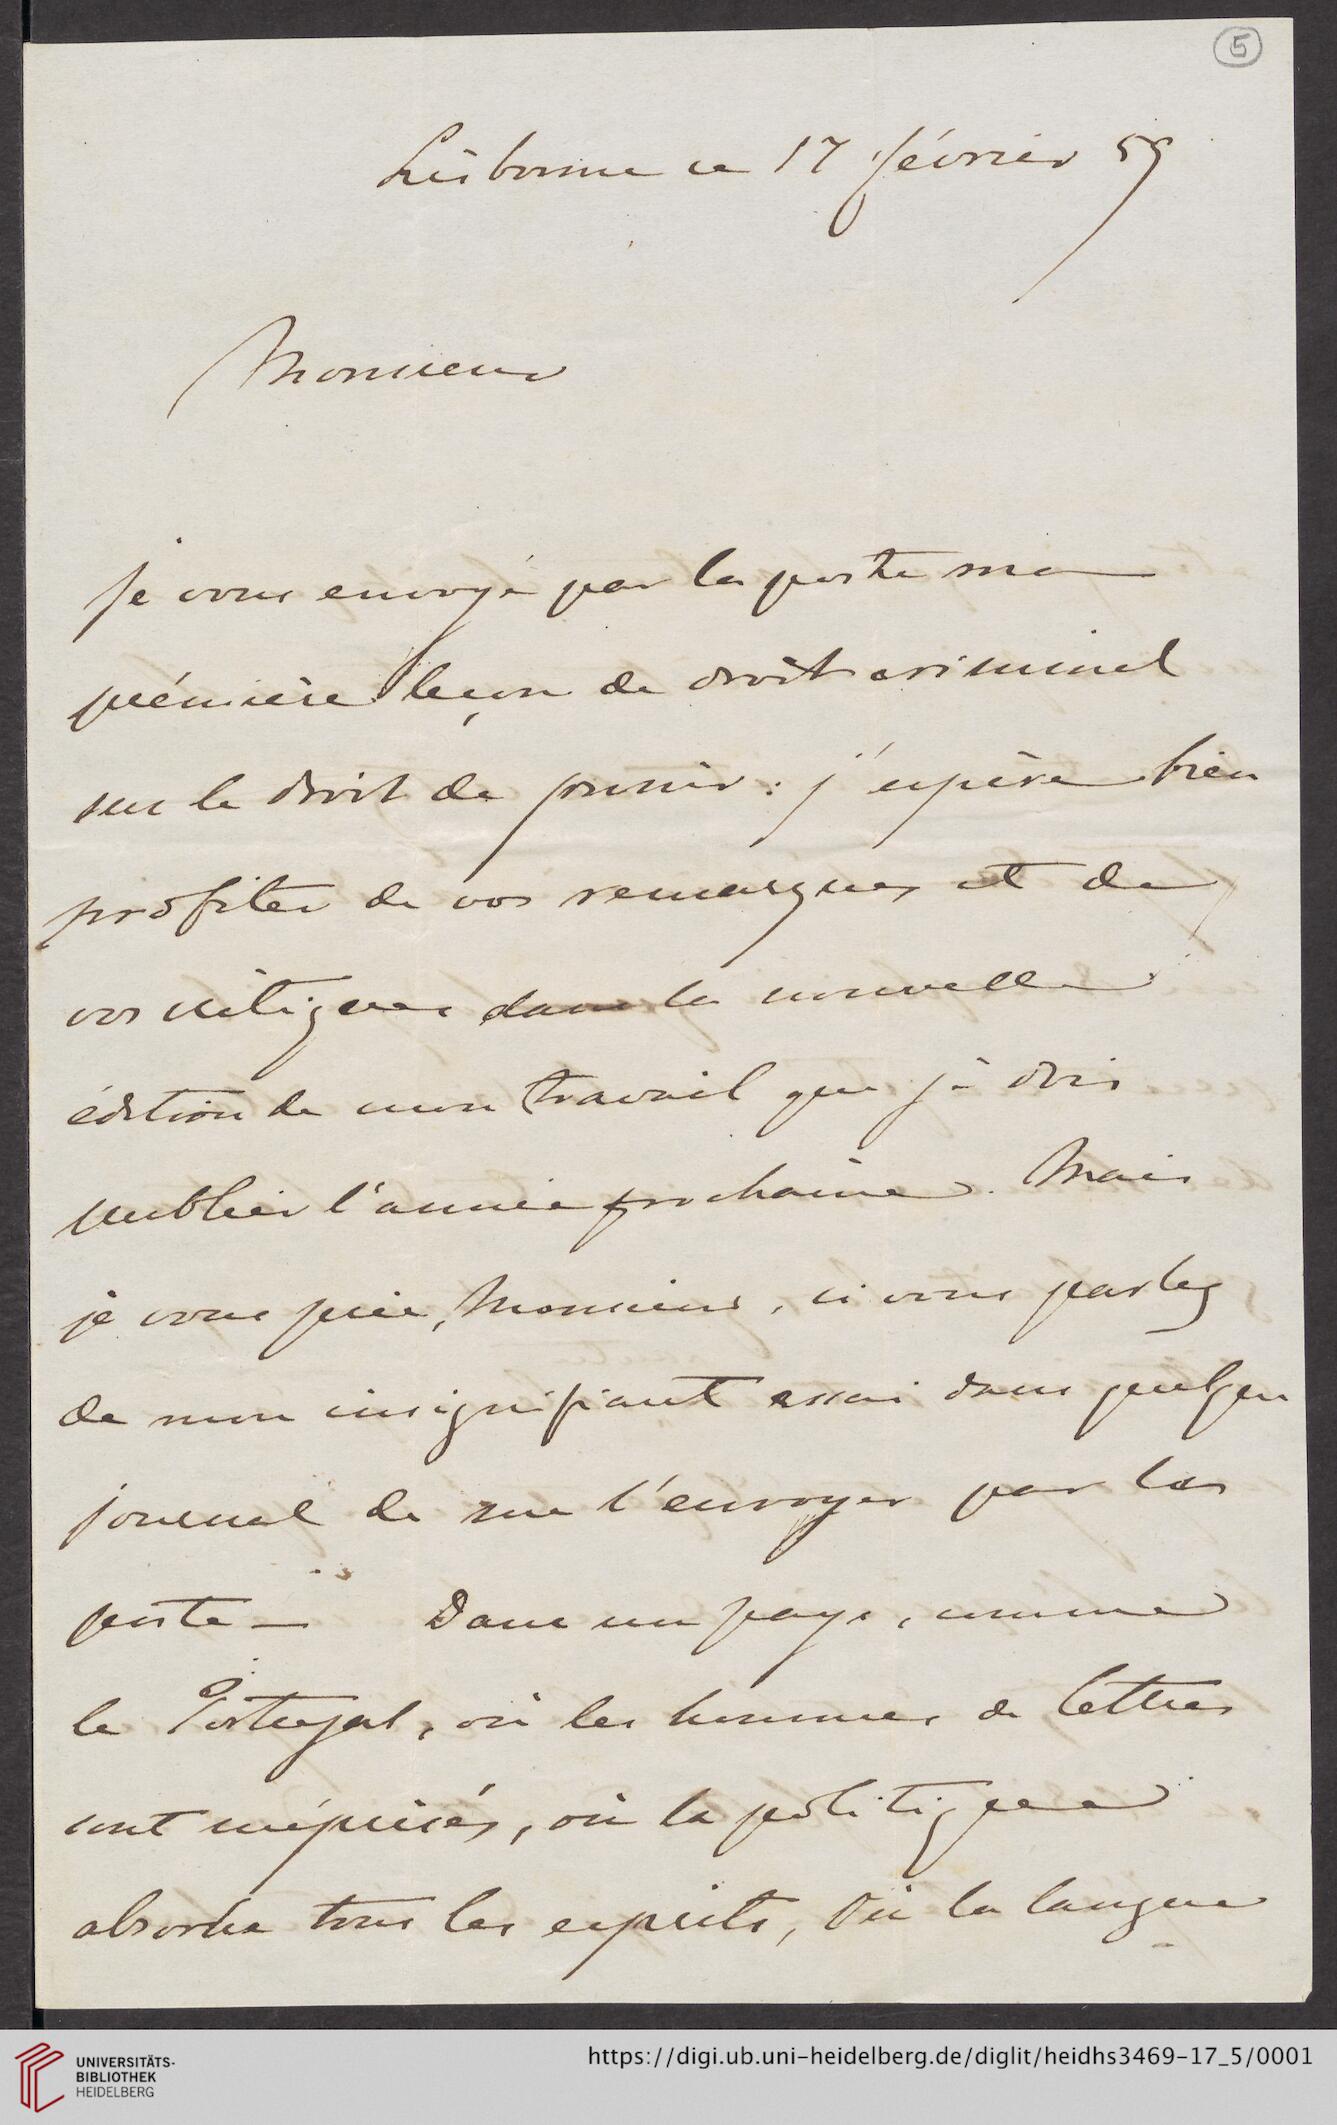 5
Lisbonne ce 17 février 59
Monsieur
Je vous envoye par la poste ma
prémière leçon de droit criminel
sur le droit de punir : j'espère bien
profiter de vos remarques et de
vos critiques dans la nouvelle
édition de mon travail que je dois
publier l'année prochaine. Mais
je vous prie, Monsieur, si vous parlez
de mon insignifiant essai dans quelque
journal de me l'envoyer par la
poste — Dans un pays, comme
le Portugal, où les hommes de lettres
sont méprisés, où la politique
absorbe tous les esprits, où la langue
UNIVERSITÄTS-
BIBLIOTHEK
HEIDELBERG
https://digi.ub.uni-heidelberg.de/diglit/heidhs3469-17_5/0001